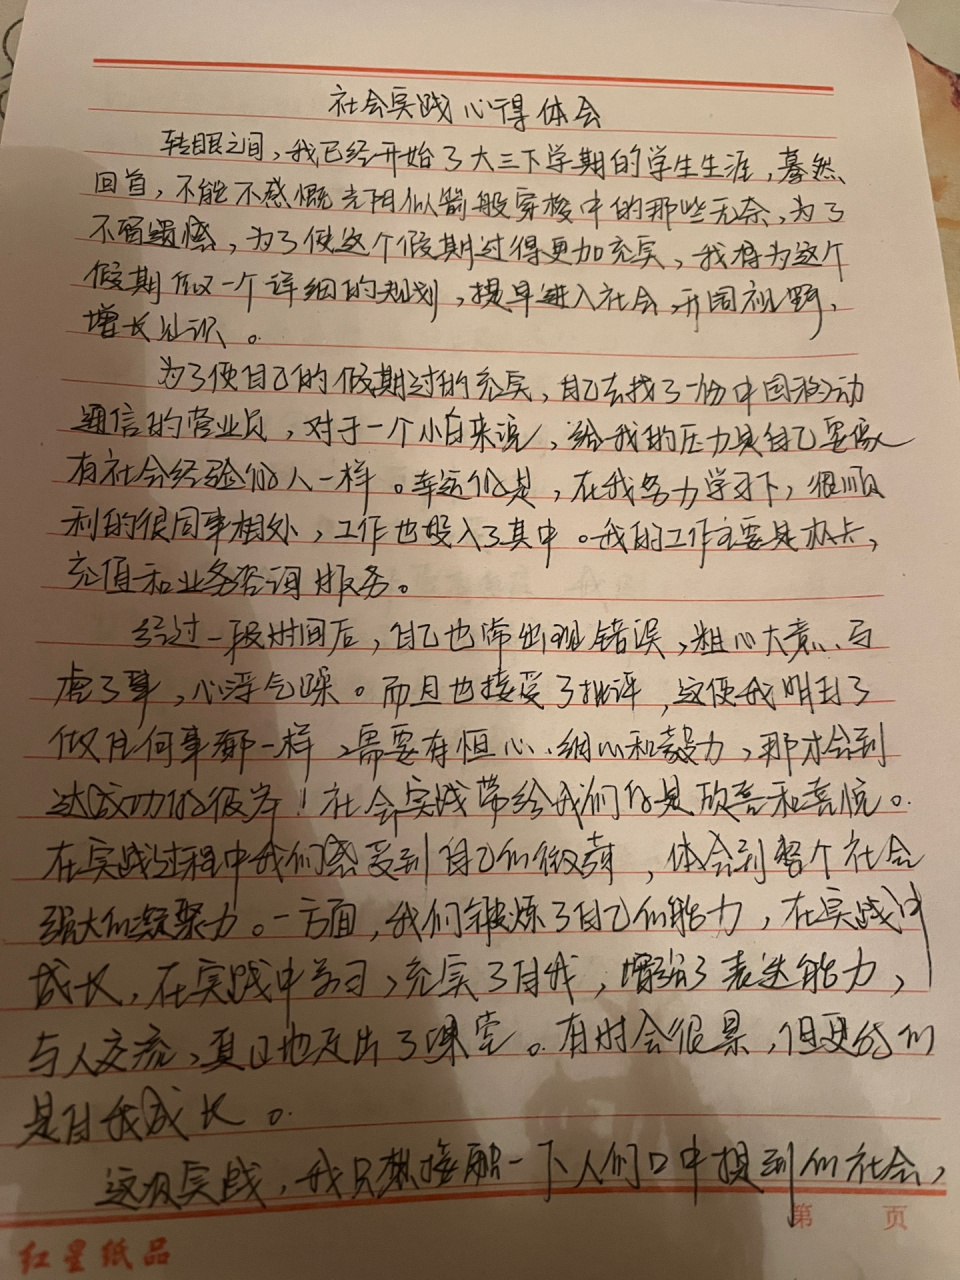 社会实践心得体会
转眼之间，我已经开始了大三下学期的学生生涯，蓦然
回首，不能不感慨光阴似箭般穿梭中的那些无奈，为了
不留遗憾，为了使这个假期过得更加充实，我将为这个
假期做一个详细的规划，提早进入社会，开阔视野，
增长见识。
为了使自己的假期过的充实，自己去找了一份中国移动
通信的营业员，对于一个小白来说，给我的压力是自己要像
有社会经验的人一样。幸运的是，在我努力学习下，很顺
利的很同事相处，工作也投入了其中。我的工作主要是办卡，
充值和业务咨询服务。
经过一段时间后，自己也常出现错误，粗心大意、马
虎了事，心浮气躁。而且也接受了批评，这使我明白了
做任何事都一样，需要有恒心、细心和毅力，那才会到
达成功的彼岸！社会实践带给我们的是欣喜和喜悦。
在实践过程中我们感受到自己的微薄，体会到整个社会
强大的凝聚力。一方面，我们锻炼了自己的能力，在实践中
成长，在实践中学习，充实了自我，增强了表达能力，
与人交流，真正地走出了课堂。有时会很累，但更多的
是自我成长。
这次实践，我只想接触一下人们口中提到的社会，
第 页
红星纸品